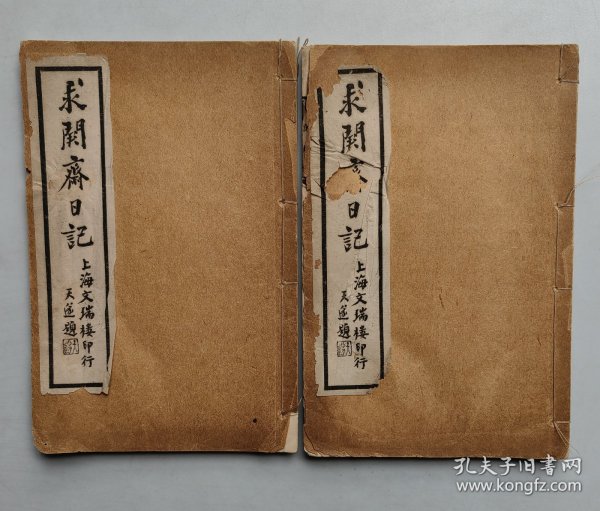 求闕齋日記
上海文瑞樓印行
天遂題
求闕
日記
上海文瑞樓印行
天遂題
孔夫子旧书网
www.kongfz.com